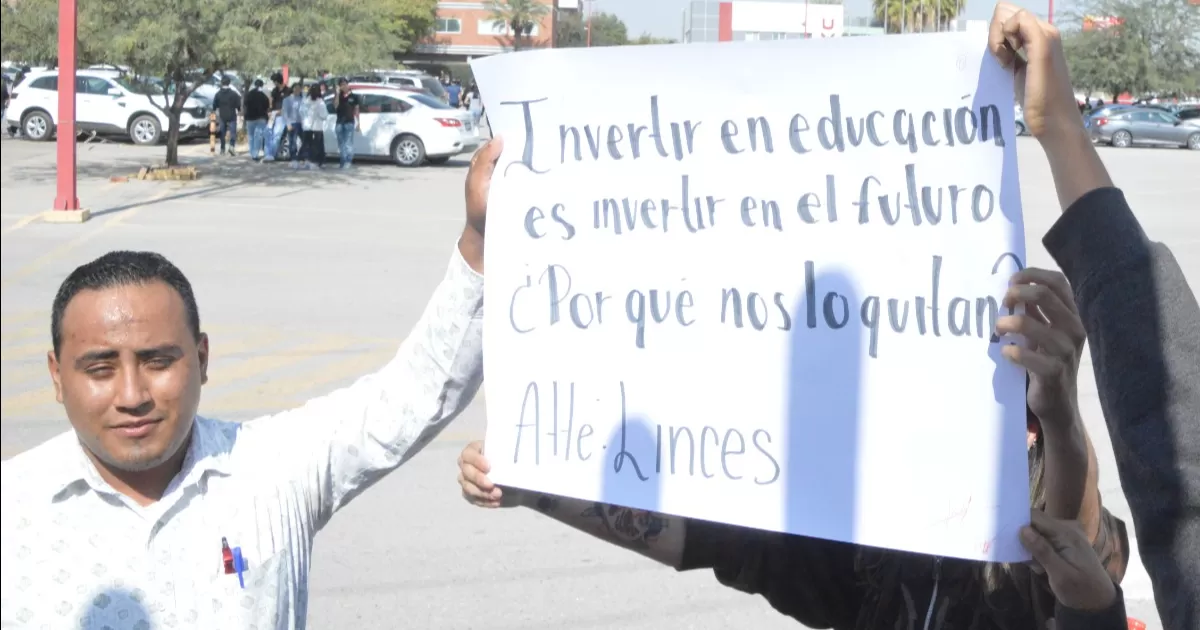 Invertir en educación
es invertir en el futuro
¿Por qué nos lo quitan?
Atte: Linces